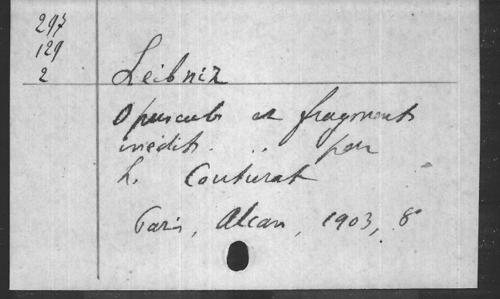 297
129
2
Leibniz
Opuscules et fragments
inédits . . par
L. Couturat
Paris, Alcan, 1903, 8°